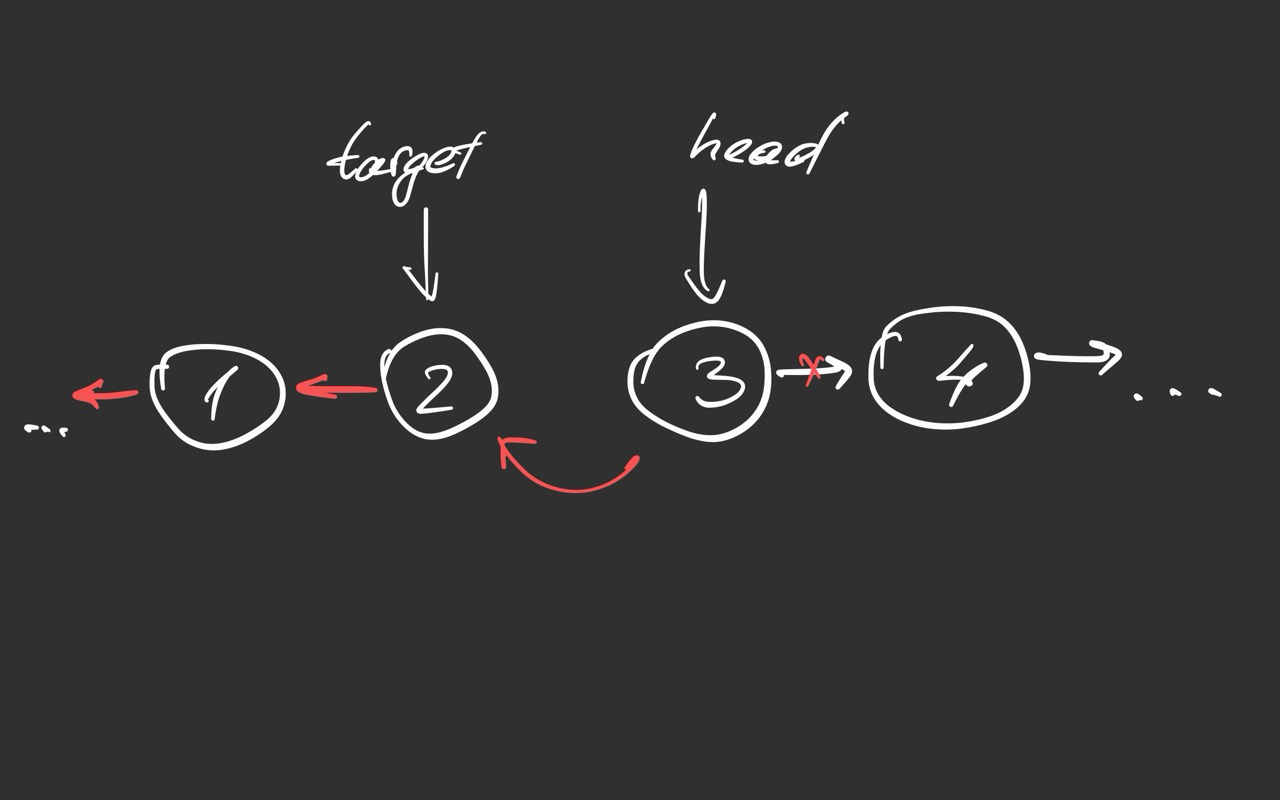 target head
1 2 3 x 4
... ...